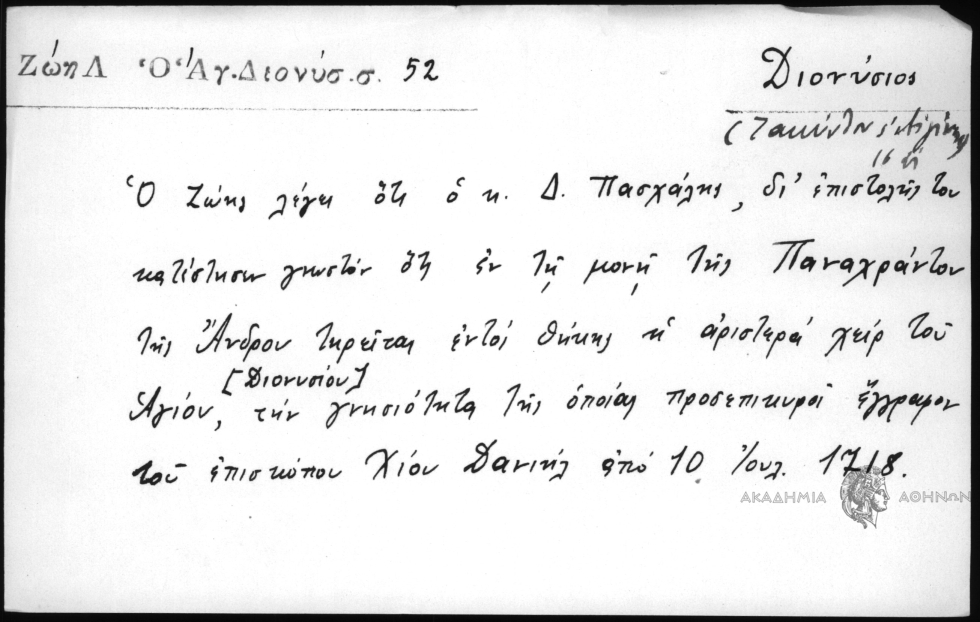 Ζώη Λ Ὁ Ἅγ. Διονύσ. σ. 52
Διονύσιος
(Ζακύνθου
Ὁ Ζώης λέγει ὅτι ὁ κ. Δ. Πασχάλης, δι' ἐπιστολῆς του
κατέστησεν γνωστόν ὅτι ἐν τῇ μονῇ τῆς Παναχράντου
τῆς Ἄνδρου τηρεῖται ἐντός θήκης ἡ ἀριστερά χείρ τοῦ
Ἁγίου, [Διονυσίου] τήν γνησιότητα τῆς ὁποίας προσεπικυροῖ ἔγγραφον
τοῦ ἐπισκόπου Χίου Δανιήλ ἀπό 10 Ἰουλ. 1718.
ΑΚΑΔΗΜΙΑ ΑΘΗΝΩΝ